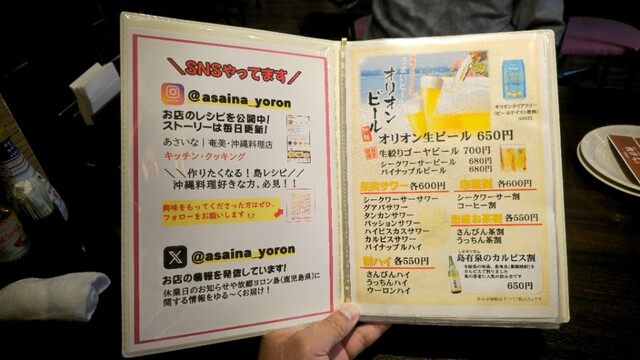 SNSやってます
@asaina_yoron
お店のレシピを公開中！
ストーリーは毎日更新！
あさいな｜奄美・沖縄料理店
キッチン・クッキング
＼＼作りたくなる！島レシピ／／
沖縄料理好きな方、必見！！
興味をもってくださった方はぜひ、
フォローをお願いします
@asaina_yoron
お店の情報を発信しています！
休業日のお知らせや故郷ヨロン島(鹿児島県)に
関する情報をゆる〜くお届け！
オリオンビール
オリオン生ビール 650円
生絞りゴーヤビール 700円
シークワーサービール 680円
パイナップルビール 680円
オリオンクリアフリー
(ビールテイスト飲料)
550円
果実サワー 各600円
シークワーサーサワー
グアバサワー
タンカンサワー
パッションサワー
ハイビスカスサワー
カルピスサワー
パイナップルハイ
酎ハイ 各550円
さんぴんハイ
うっちんハイ
ウーロンハイ
泡盛割 各600円
シークワーサー割
コーヒー割
泡盛お茶割 各550円
さんぴん茶割
うっちん茶割
島有泉のカルピス割
650円